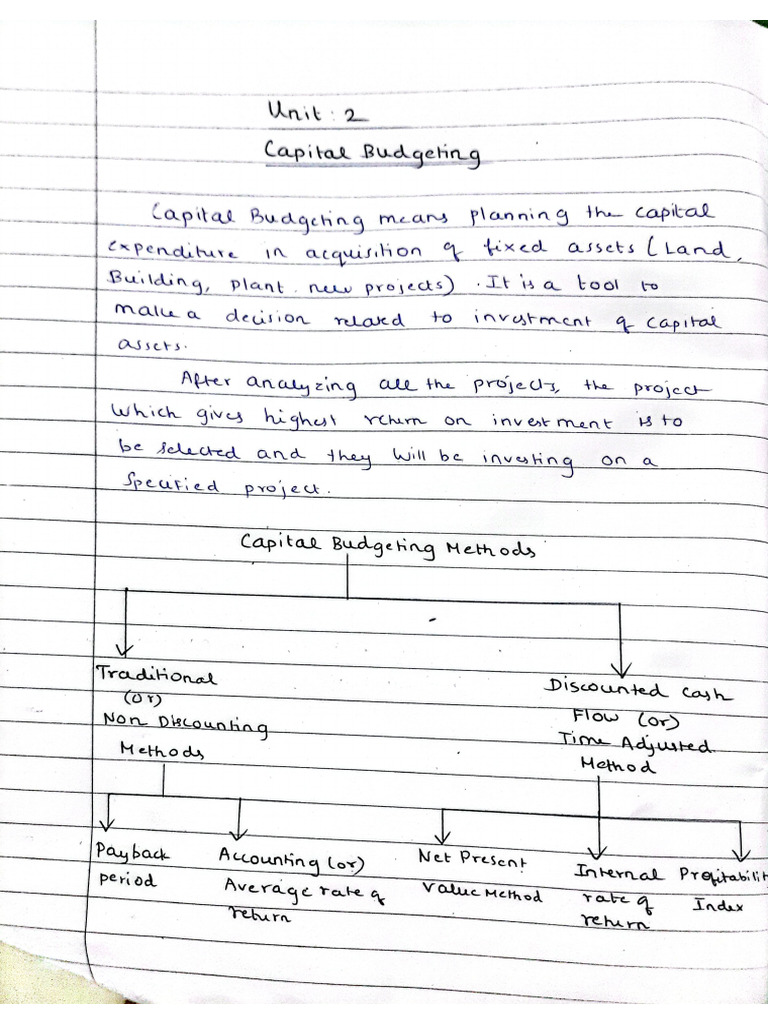 Unit : 2
Capital Budgeting
Capital Budgeting means planning the capital
expenditure in acquisition of fixed assets (Land,
Building, plant. new projects). It is a tool to
make a decision related to investment of capital
assets.
After analyzing all the projects, the project
which gives highest return on investment is to
be selected and they will be investing on a
specified project.
Capital Budgeting Methods
Traditional
(or)
Non Discounting
Methods
Discounted Cash
Flow (or)
Time Adjusted
Method
Payback
period
Accounting (or)
Average rate of
return
Net Present
Value Method
Internal
rate of
return
Profitabilit
Index